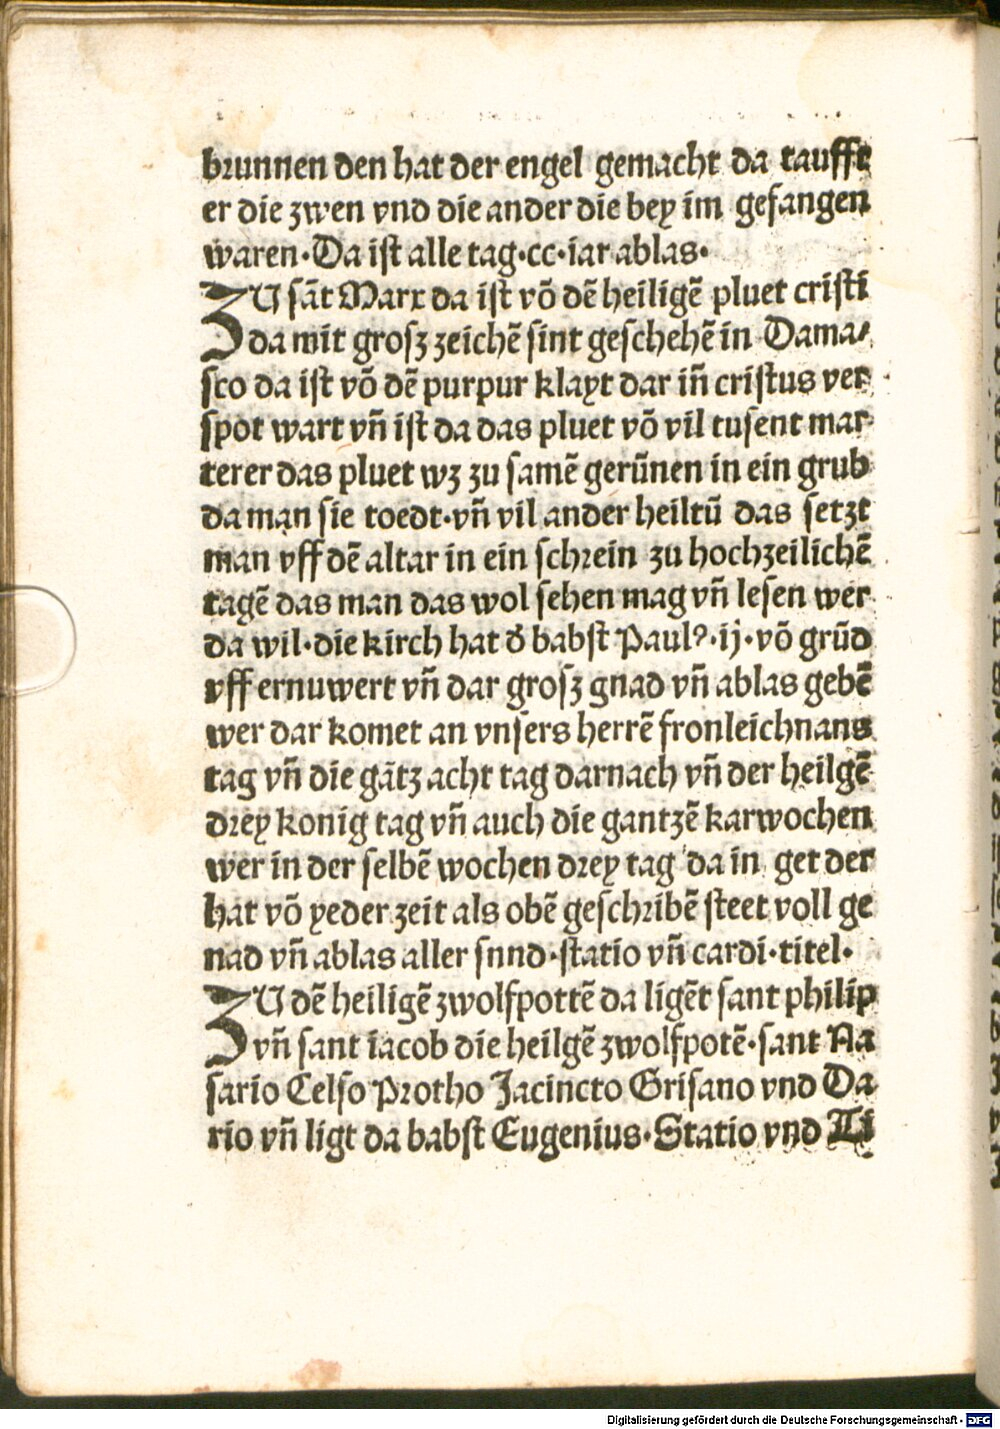 brunnen den hat der engel gemacht da taufft
er die zwen vnd die ander die bey im gefangen
waren·Da ist alle tag·cc·iar ablas·
ZU sāt Marx da ist vō dē heiligē pluet cristi
da mit grosz zeichē sint geschehē in Dama⸗
sco da ist vō dē purpur klayt dar in̄ cristus ver
spot wart vn̄ ist da das pluet vō vil tusent mar
terer das pluet wz zu samē gerūnen in ein grub
da man sie toedt·vn̄ vil ander heiltū das setzt
man vff dē altar in ein schrein zu hochzeilichē
tagē das man das wol sehen mag vn̄ lesen wer
da wil·die kirch hat d̄ babst Paulꝰ·ij·vō grūd
vff ernuwert vn̄ dar grosz gnad vn̄ ablas gebē
wer dar komet an vnsers herrē fronleichnans
tag vn̄ die gātz acht tag darnach vn̄ der heilgē
drey konig tag vn̄ auch die gantzē karwochen
wer in der selbē wochen drey tag da in get der
hat vō yeder zeit als obē geschribē steet voll ge
nad vn̄ ablas aller snnd·statio vn̄ cardi·titel·
ZU dē heiligē zwolfpottē da ligēt sant philip
vn̄ sant iacob die heilgē zwolfpotē·sant Na
sario Celso Protho Jacincto Grisano vnd Da
rio vn̄ ligt da babst Eugenius·Statio vnd Ti
Digitalisierung gefördert durch die Deutsche Forschungsgemeinschaft - DFG